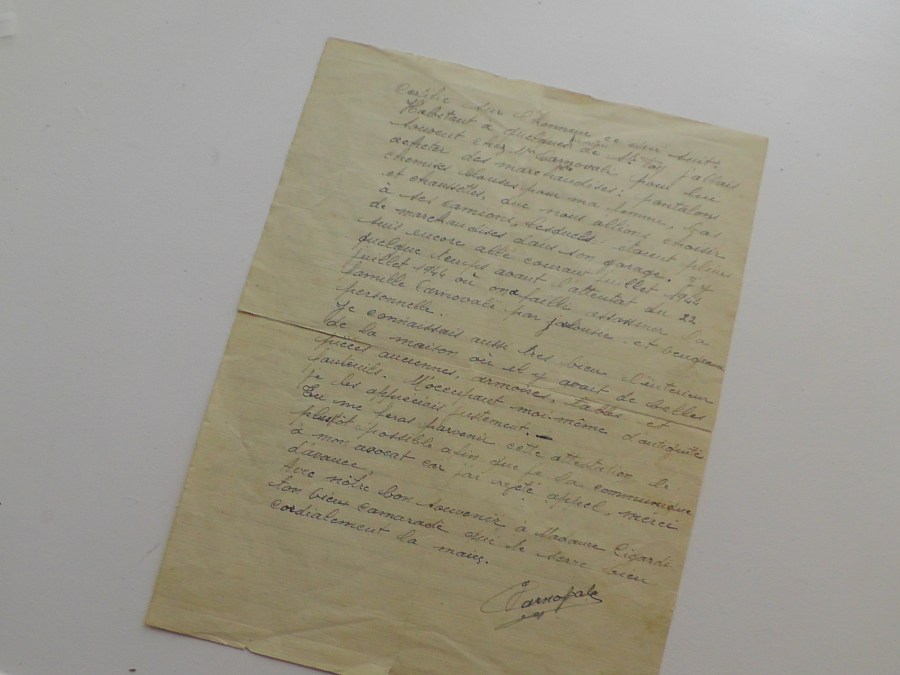 Certifie sur l'honneur ce qui suit:
Habitant à quelques de Mr j'allais
souvent chez Mr Carnovali pour lui
acheter des marchandises: pantalons
chemises blouses pour ma femme, bas
et chaussettes, que nous allions choisir
à ses camions, lesquels, étaient pleins
de marchandises dans son garage.
suis encore allé courant juillet 1944
quelque temps avant l'attentat du 22
juillet 1944 où on failli assassiner la
famille Carnovali par jalousie et
personnelle.
Je connaissais aussi très bien l'intérieur
de la maison où il y avait de belles
pièces anciennes, armoires, tables et
fauteuils. M'occupant moi-même d'antiquité
je les appréciais justement.—
Tu me feras parvenir cette attestation le
plutôt possible afin que je la communique
à mon avocat car j'ai appel, merci
d'avance.
Avec nôtre bon souvenir à Madame
ton vieux camarade qui te serre bien
cordialement la main.